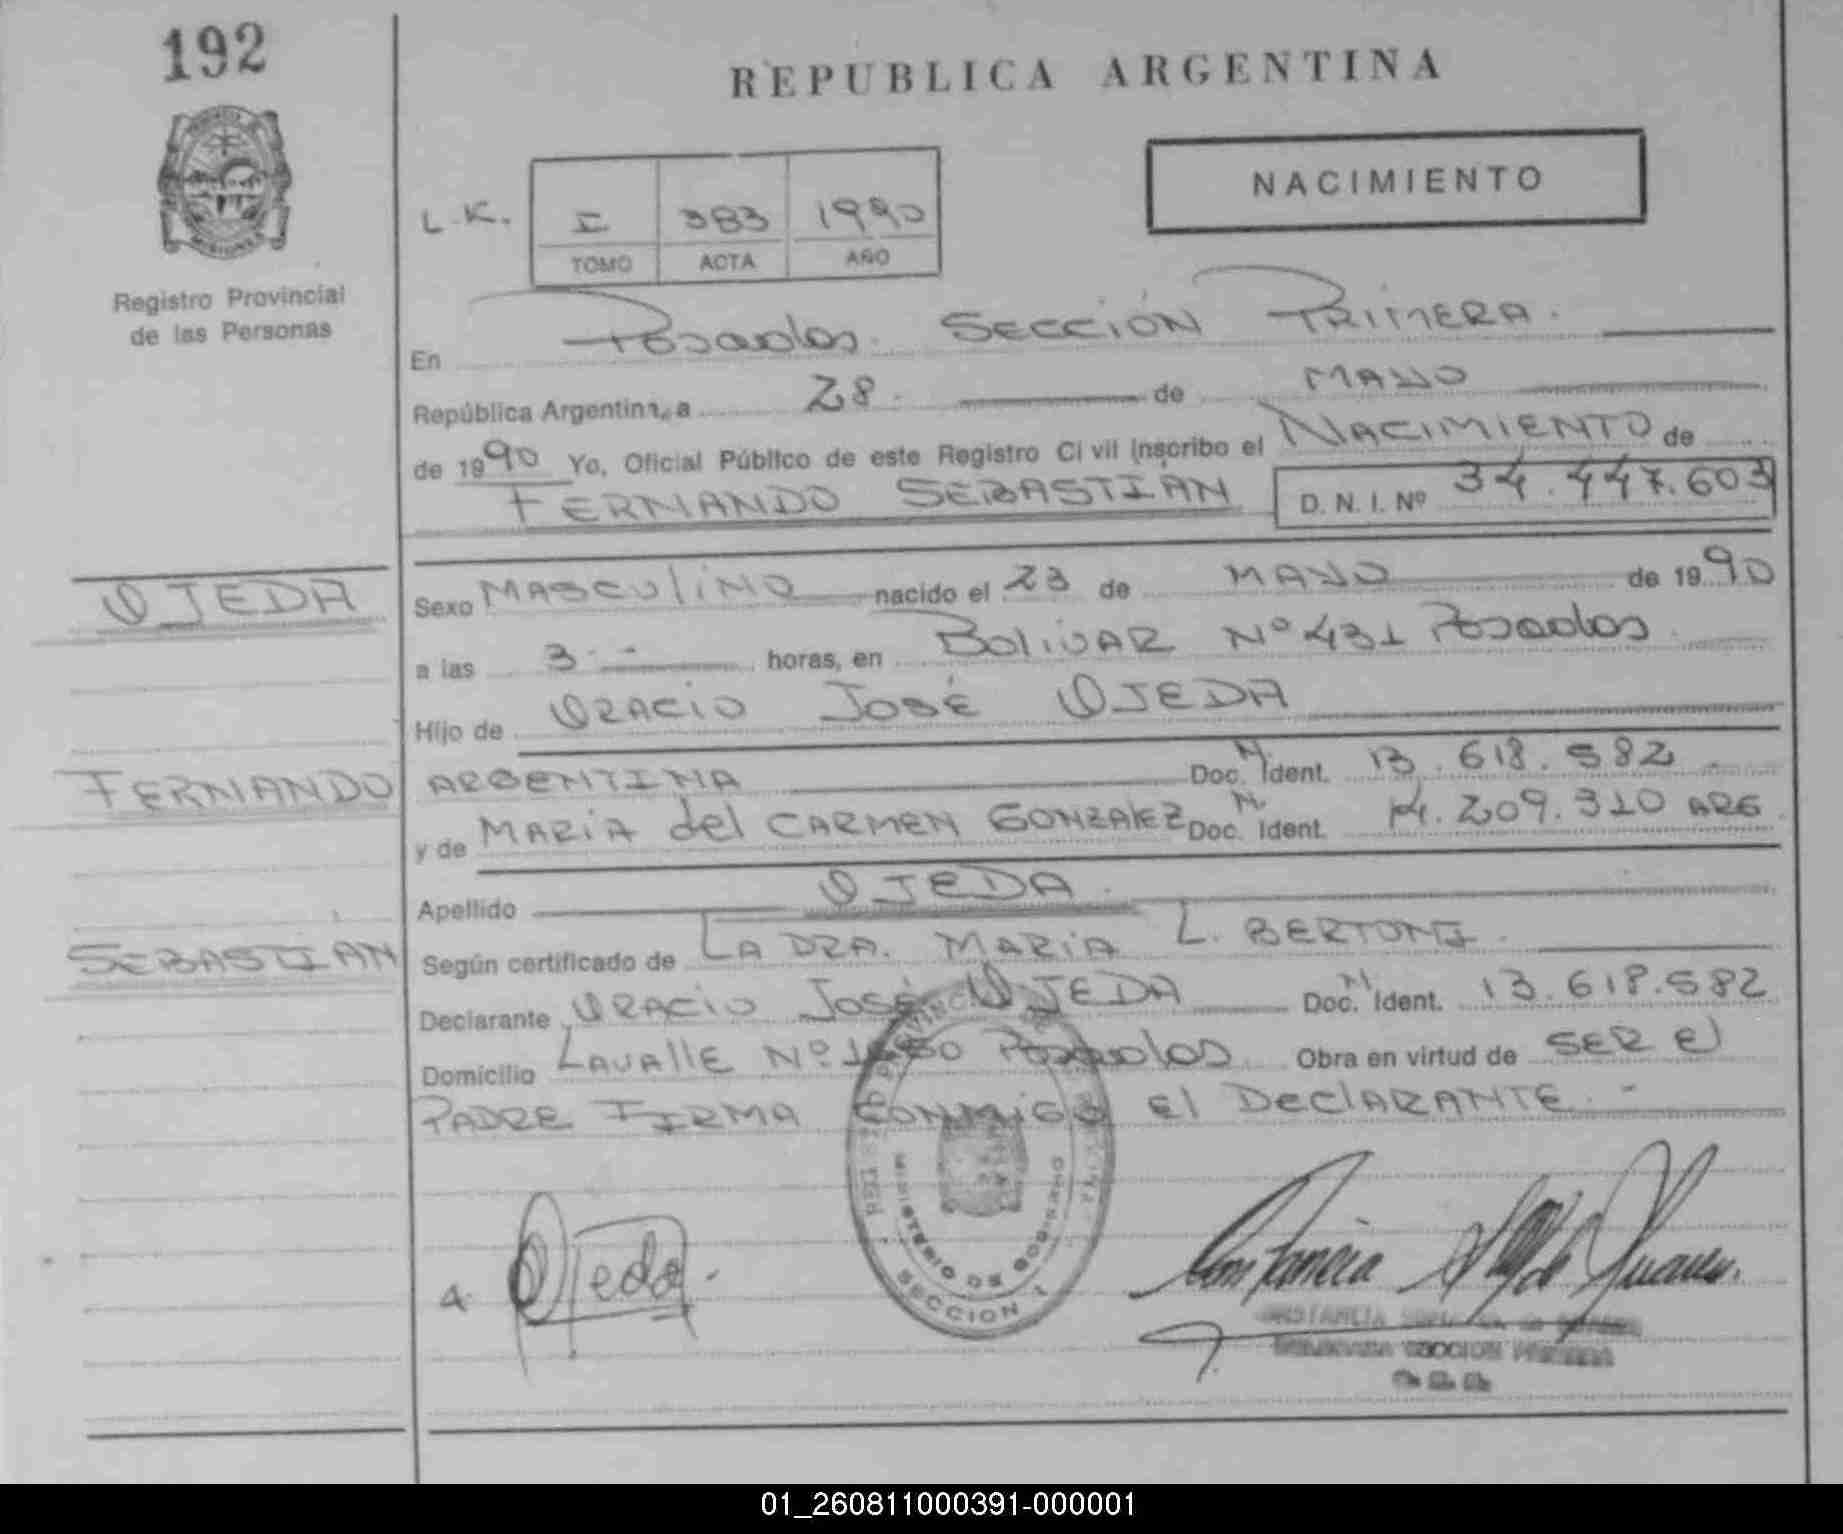 192
REPUBLICA ARGENTINA
NACIMIENTO
L.K. I 383 1990
TOMO ACTA AÑO
Registro Provincial
de las Personas
En Posadas. SECCIÓN PRIMERA.
República Argentina, a 28. de MAYO
de 1990 Yo, Oficial Público de este Registro Civil inscribo el NACIMIENTO de
FERNANDO SEBASTIÁN D. N. I. Nº 34.447.603
OJEDA
Sexo MASCULINO nacido el 23 de MAYO de 1990
a las 3.- horas, en BOLIVAR Nº 431 Posadas
Hijo de ORACIO JOSÉ OJEDA
FERNANDO
ARGENTINA Doc. M. Ident. 13.618.582
y de MARIA del CARMEN GONZALEZ Doc. M. Ident. 14.209.310 ARG
Apellido OJEDA
SEBASTIÁN
Según certificado de LA DRA. MARIA L. BERTONI.
Declarante ORACIO JOSÉ OJEDA Doc. M. Ident. 13.618.582
Domicilio LAVALLE Nº Posadas Obra en virtud de SER El
PADRE FIRMA CONMIGO El DEClARANTE.-
MINISTERIO DE GOBIERNO
SECCION 1
Ojeda.
SECCION PRIMERA
01_260811000391-000001